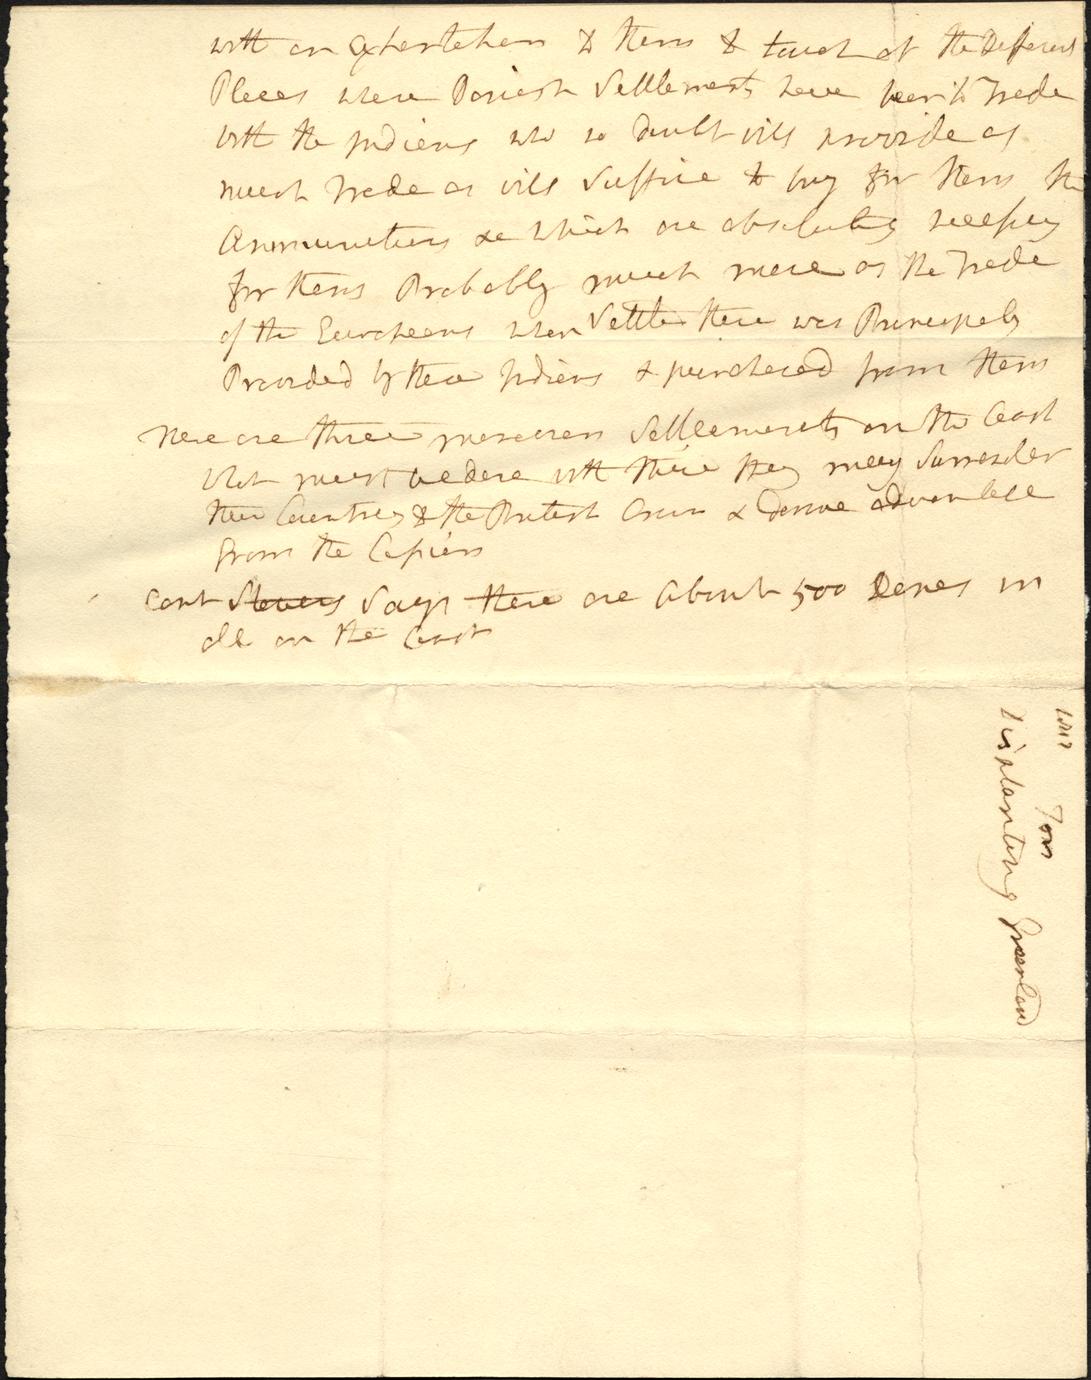 with an Exhortation to them to touch at the Different
Places where Danish Settlements have been to Trade
with the Indians who no doubt will provide as
much Trade as will Suffice to buy for them the
Ammunitions &c which are absolutely necessary
for them Probably much more as the Trade
of the Europeans when Settled there was Principaly
Provided by these Indians & purchased from them
There are three moravian Settlements on the Coast
What must be done with these they may Surrender
their Countrey to the British Crown & derive advantage
from the
Capt Stevens Says there are about 500 Danes in
all on the Coast
Displanting Greenland